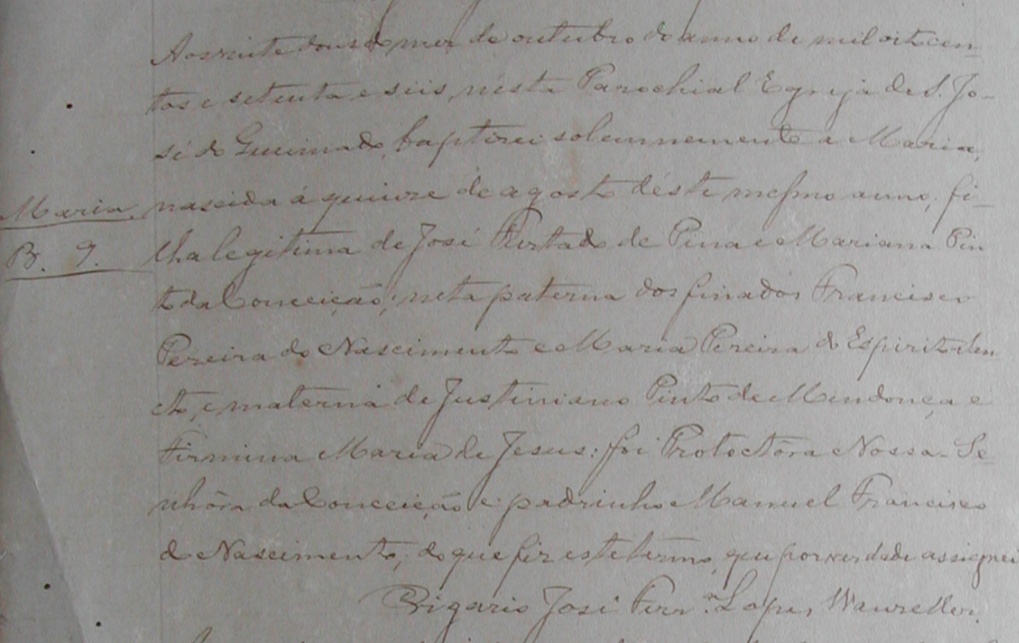 Aos vinte dous do mez de outubro do anno de mil oitocen-
tos e setenta e seis, nésta Parochial Egreja de S. Jo-
sé do Queimado, baptizei solemnemente a Maria,
Maria. nascida á quinze de agosto déste mesmo anno, fi-
B. 9. lha legitima de José Furtado de Pina e Mariana Pin
to da Conceição; neta paterna dos finados Francisco
Pereira do Nascimento e Maria Pereira do Espirito San
cto, e materna de Justiniano Pinto de Mendonça e
Firmina Maria de Jesus: foi Protectôra Nossa Se-
nhôra da Conceição e padrinho Manuel Francisco
do Nascimento; do que fiz este termo, que por verdade assignei
Vigario José Ferr.ª Lopes